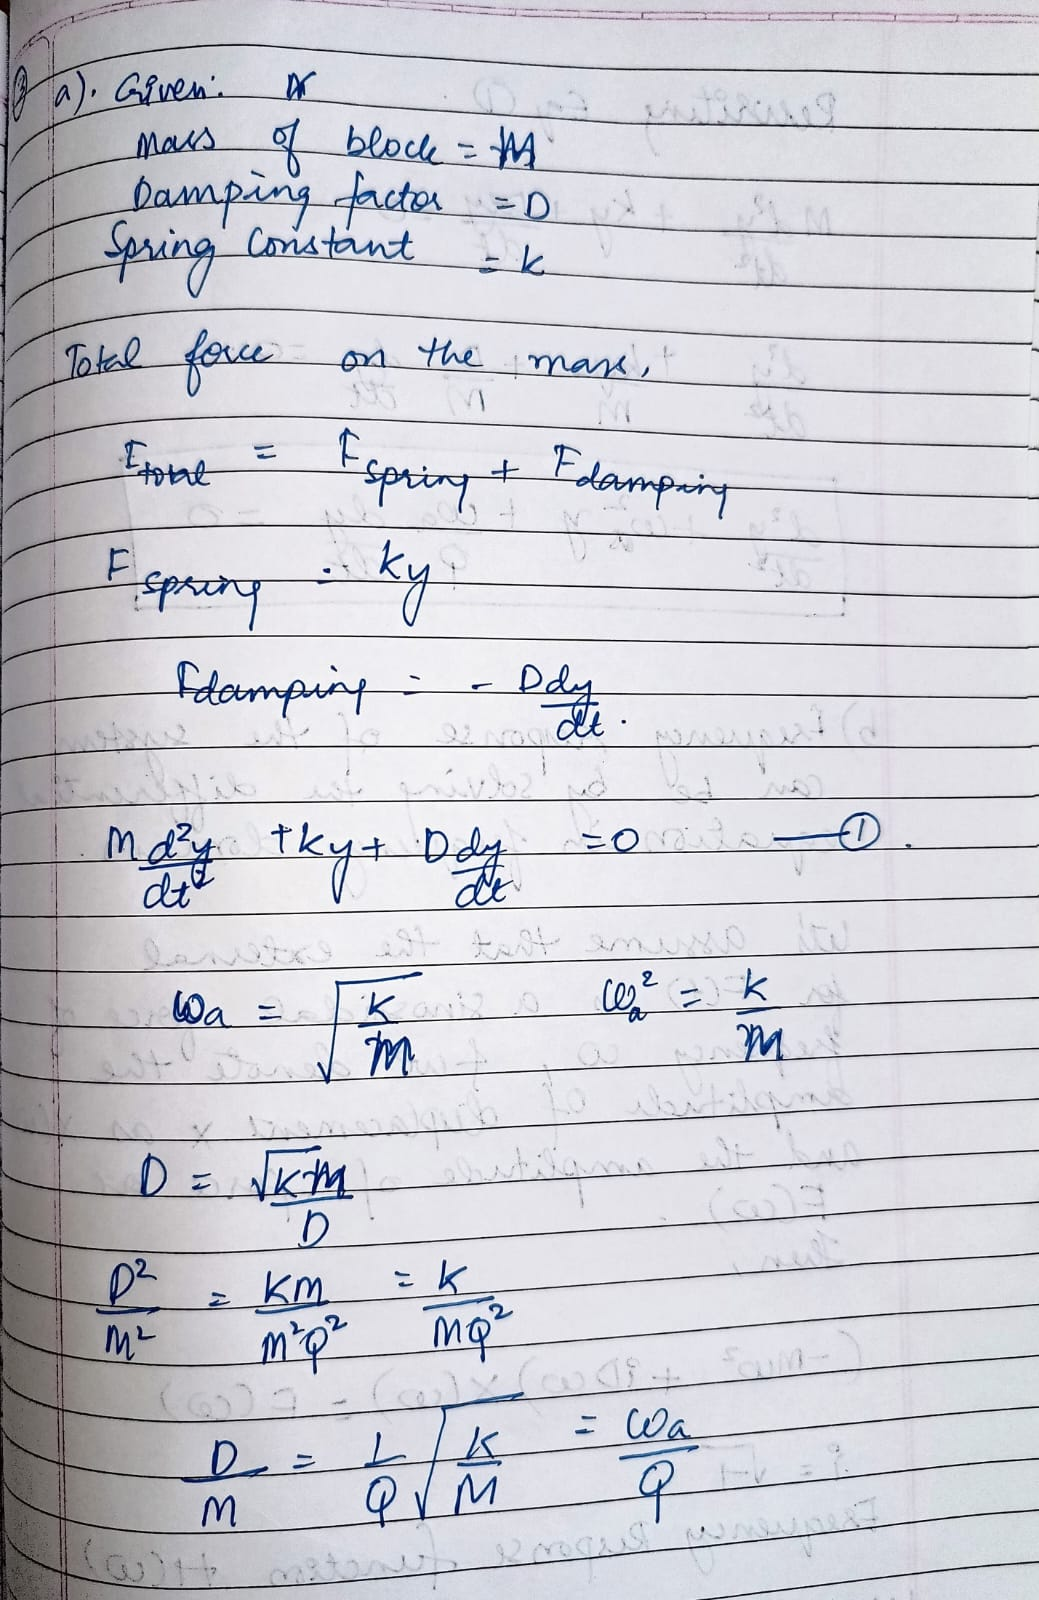 ③ a). Given:
Mass of block = M
Damping factor = D
Spring Constant = k
Total force on the mass,
F total = F spring + F damping
F spring = ky
F damping = - D dy/dt.
M d²y/dt² + ky + D dy/dt = 0 — ①.
ωa = √(k/m) ωa² = k/m
D = √km / D
D²/M² = KM/m²Q² = k/MQ²
D/M = 1/Q √(K/M) = ωa/Q